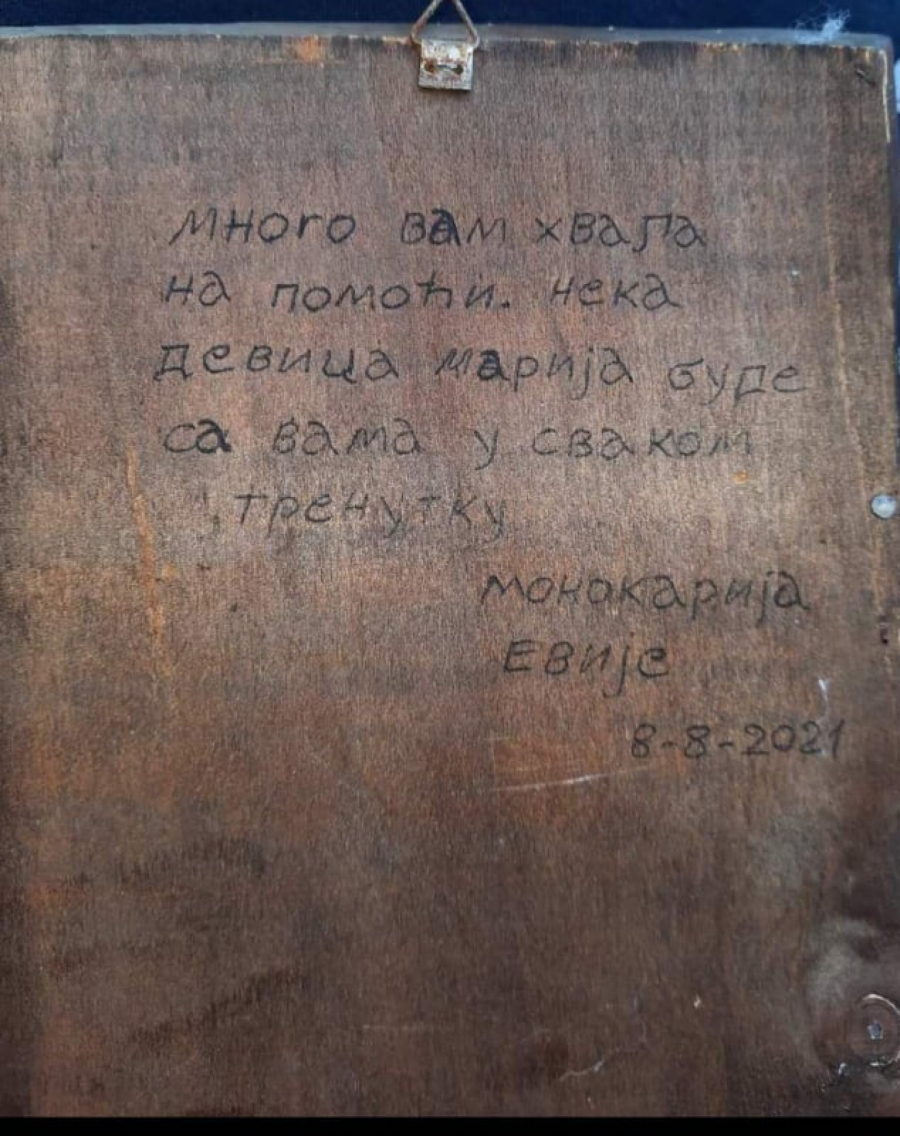 много вам хвала
на помоћи. нека
девица марија буде
са вама у сваком
тренутку
монокарија
Евије
8-8-2021